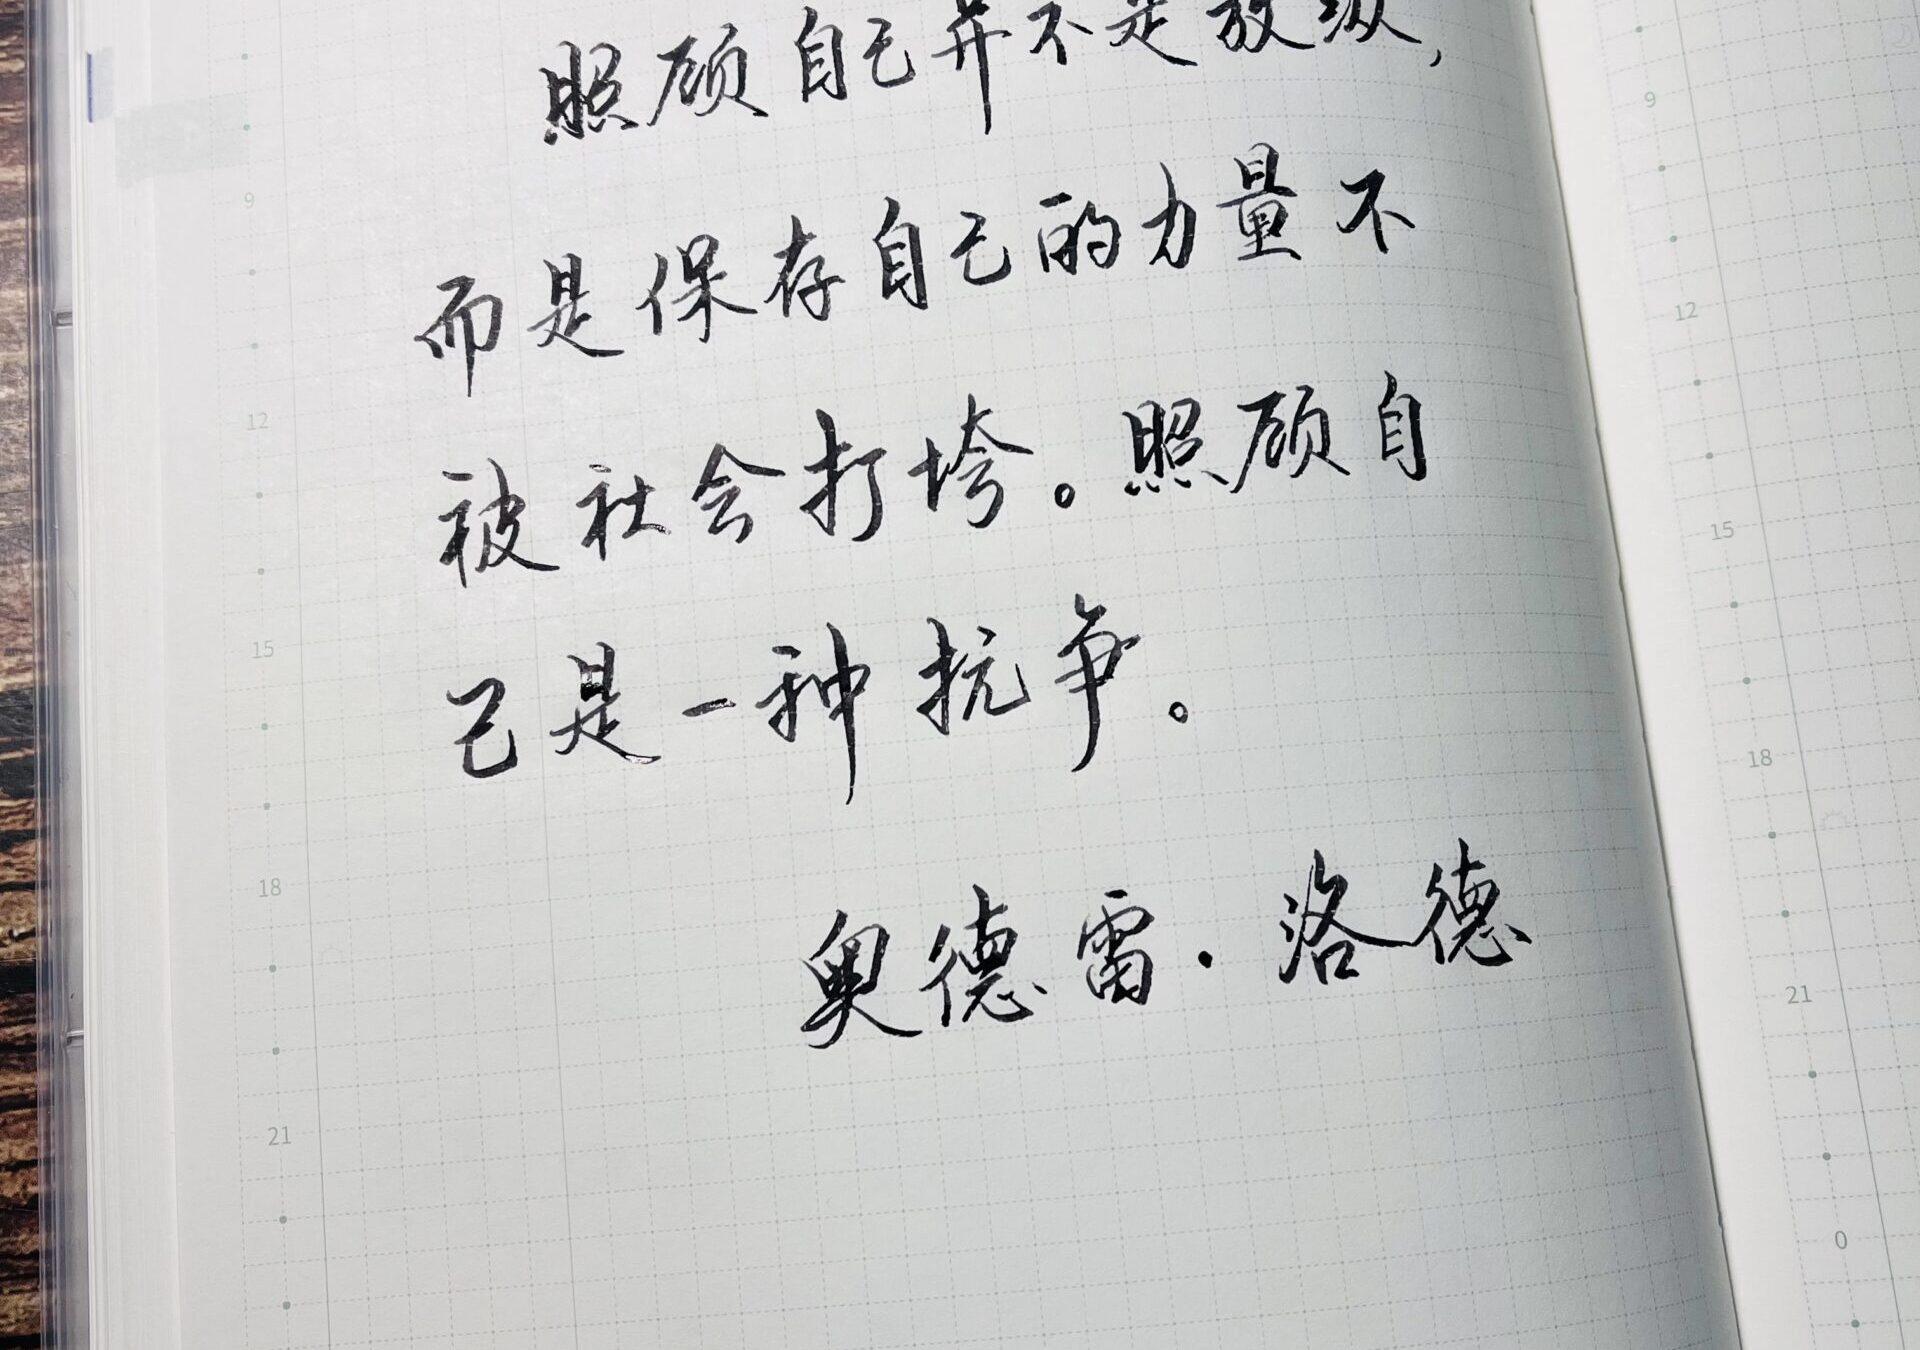 照顾自己并不是放纵，
而是保存自己的力量不
被社会打垮。照顾自
己是一种抗争。
奥德雷·洛德
9
12
15
18
21
9
12
15
18
21
0